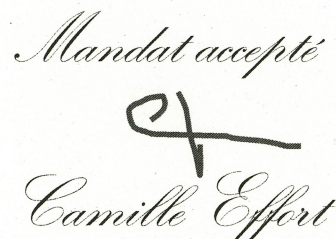 Mandat accepté
Camille Effort